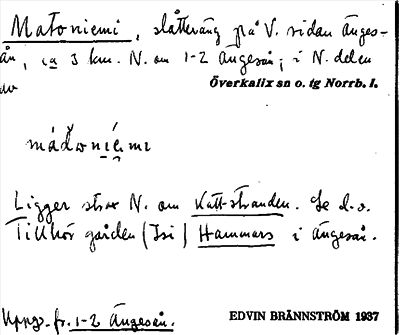 Matoniemi, slåtteräng på V. sidan Änges-
ån, ca 3 km. N. om 1-2 Ängesån; i N. delen
av
Överkalix sn o. tg Norrb. l.
mád̆oniémi
Ligger strax N. om Kattstranden. Se d.o.
Tillhör gården (Isi) Hammars i Ängesån.
Uppg. fr. 1-2 Ängesån.
EDVIN BRÄNNSTRÖM 1937